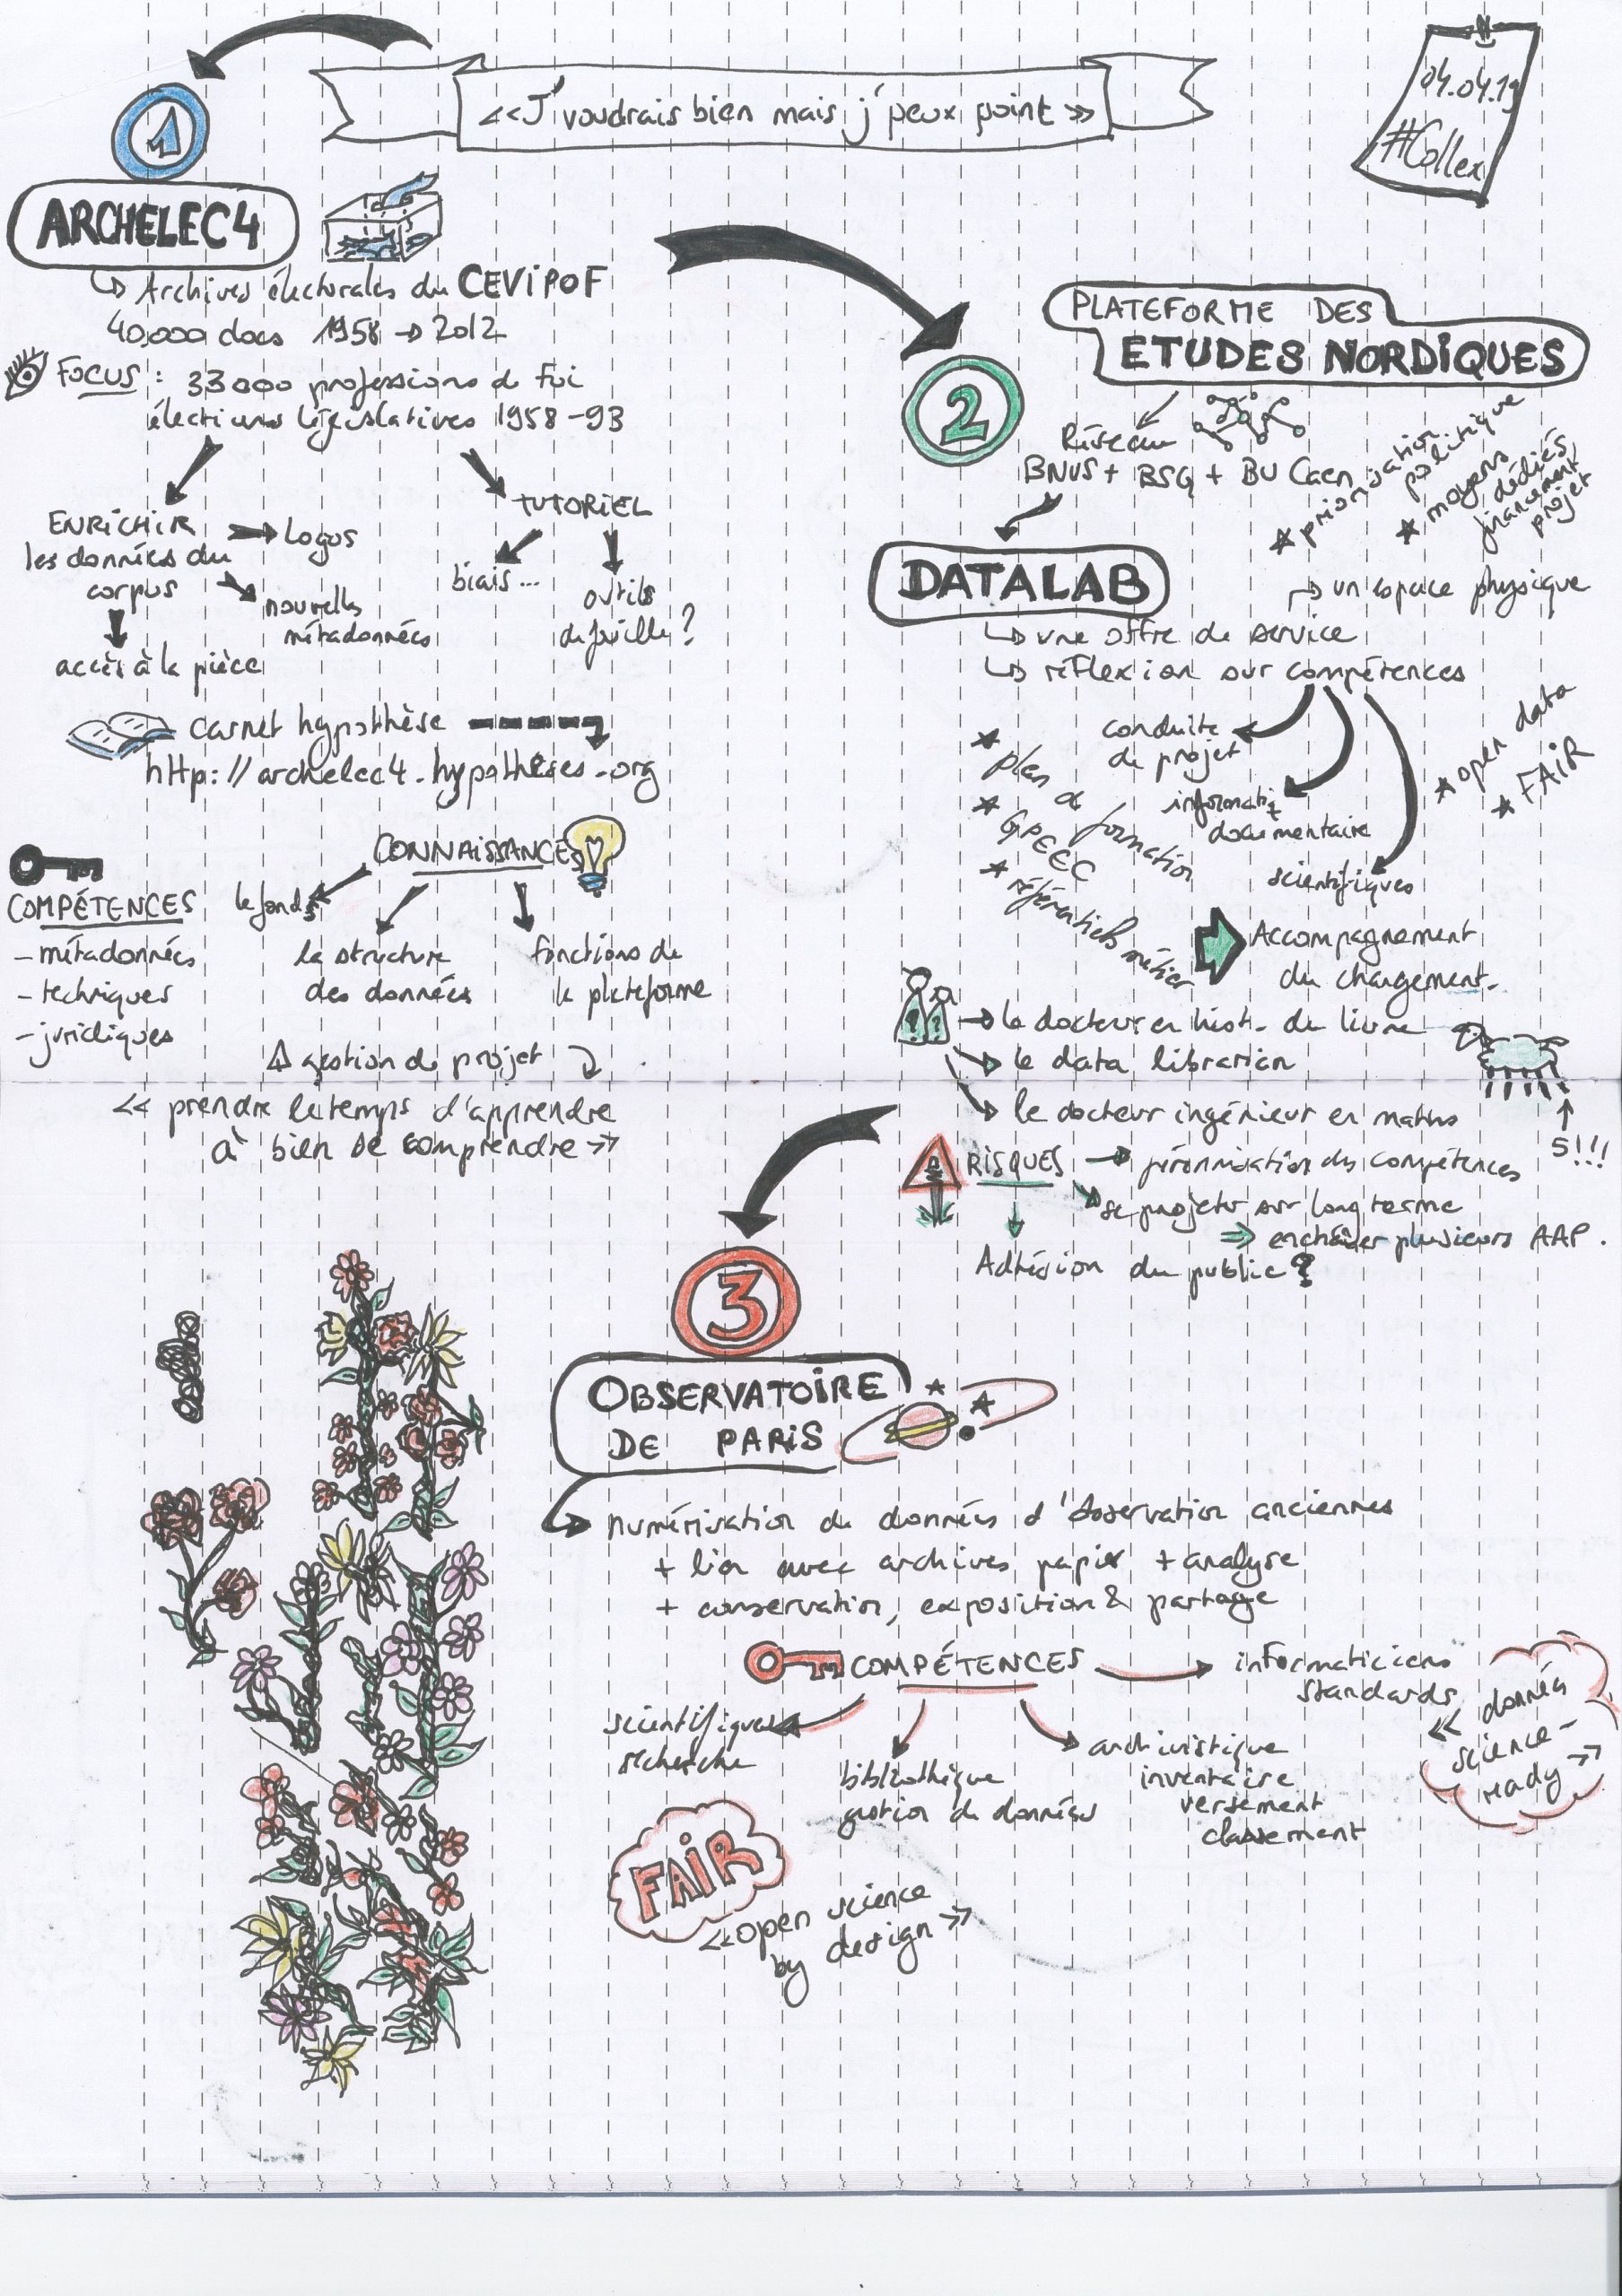 <<J'voudrais bien mais j'peux point>>
04.04.19
#Collex
1
ARCHELEC4
Archives électorales du CEVIPOF
40,000 docs 1958 → 2012
FOCUS : 33000 professions de foi
élections législatives 1958-93
ENRICHIR
les données du
corpus
logos
nouvelles
métadonnées
accès à la pièce
TUTORIEL
biais...
outils
de fouille?
carnet hypothèse
http://archelec4.hypotheses.org
COMPÉTENCES
- métadonnées
- techniques
- juridiques
CONNAISSANCES
le fonds
la structure
des données
fonctions de
la plateforme
gestion de projet
<< prendre le temps d'apprendre
à bien se comprendre >>
2
PLATEFORME DES
ETUDES NORDIQUES
Réseau
BNUS + BSG + BU Caen
* priorisation
politique
* moyens
dédiés
financement
projet
DATALAB
un espace physique
une offre de service
réflexion sur compétences
conduite
de projet
informatiq
documentaire
scientifiques
* open data
* FAIR
* plan de formation
* GPEEC
* référentiels métier
Accompagnement
du changement.
le docteur en hist. du livre
le data librarian
le docteur ingénieur en maths
5!!!
RISQUES
pérennisation des compétences
se projeter sur long terme
⇒ enchaîner plusieurs AAP.
Adhésion du public?
3
OBSERVATOIRE
DE PARIS
numérisation de données d'observation anciennes
+ lien avec archives papier + analyse
+ conservation, exposition & partage
COMPÉTENCES
informaticiens
standards
scientifiques
recherche
bibliothèque
gestion de données
archivistique
inventaire
versement
classement
<< données
science-
ready >>
FAIR
<<open science
by design >>